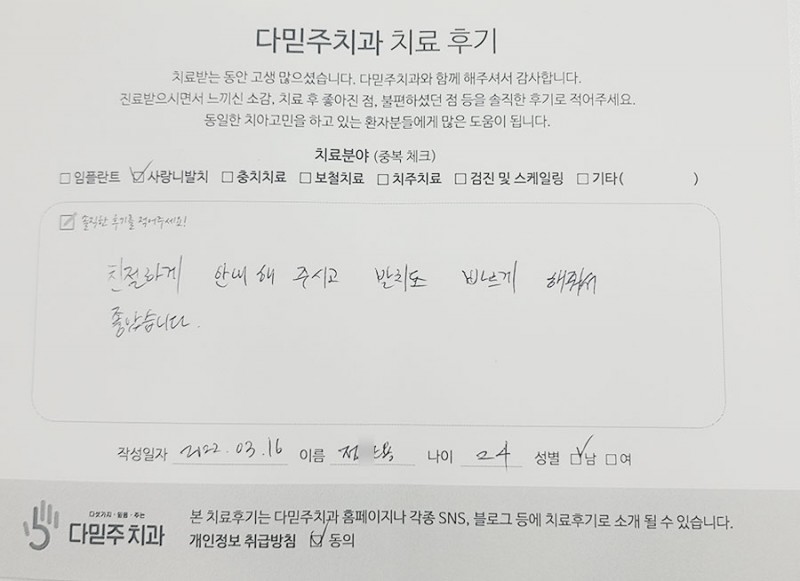 다믿주치과 치료 후기
치료받는 동안 고생 많으셨습니다. 다믿주치과와 함께 해주셔서 감사합니다.
진료받으시면서 느끼신 소감, 치료 후 좋아진 점, 불편하셨던 점 등을 솔직한 후기로 적어주세요.
동일한 치아고민을 하고 있는 환자분들에게 많은 도움이 됩니다.
치료분야 (중복 체크)
□임플란트 ☑사랑니발치 □충치치료 □보철치료 □치주치료 □검진 및 스케일링 □기타( )
솔직한 후기를 적어주세요!
친절하게 안내해 주시고 발치도 빠르게 해줘서
좋았습니다.
작성일자 2022.03.16 이름 정 나이 24 성별 ☑남 □여
다섯가지·믿음·주는
다믿주치과
본 치료후기는 다믿주치과 홈페이지나 각종 SNS, 블로그 등에 치료후기로 소개 될 수 있습니다.
개인정보 취급방침 ☑동의